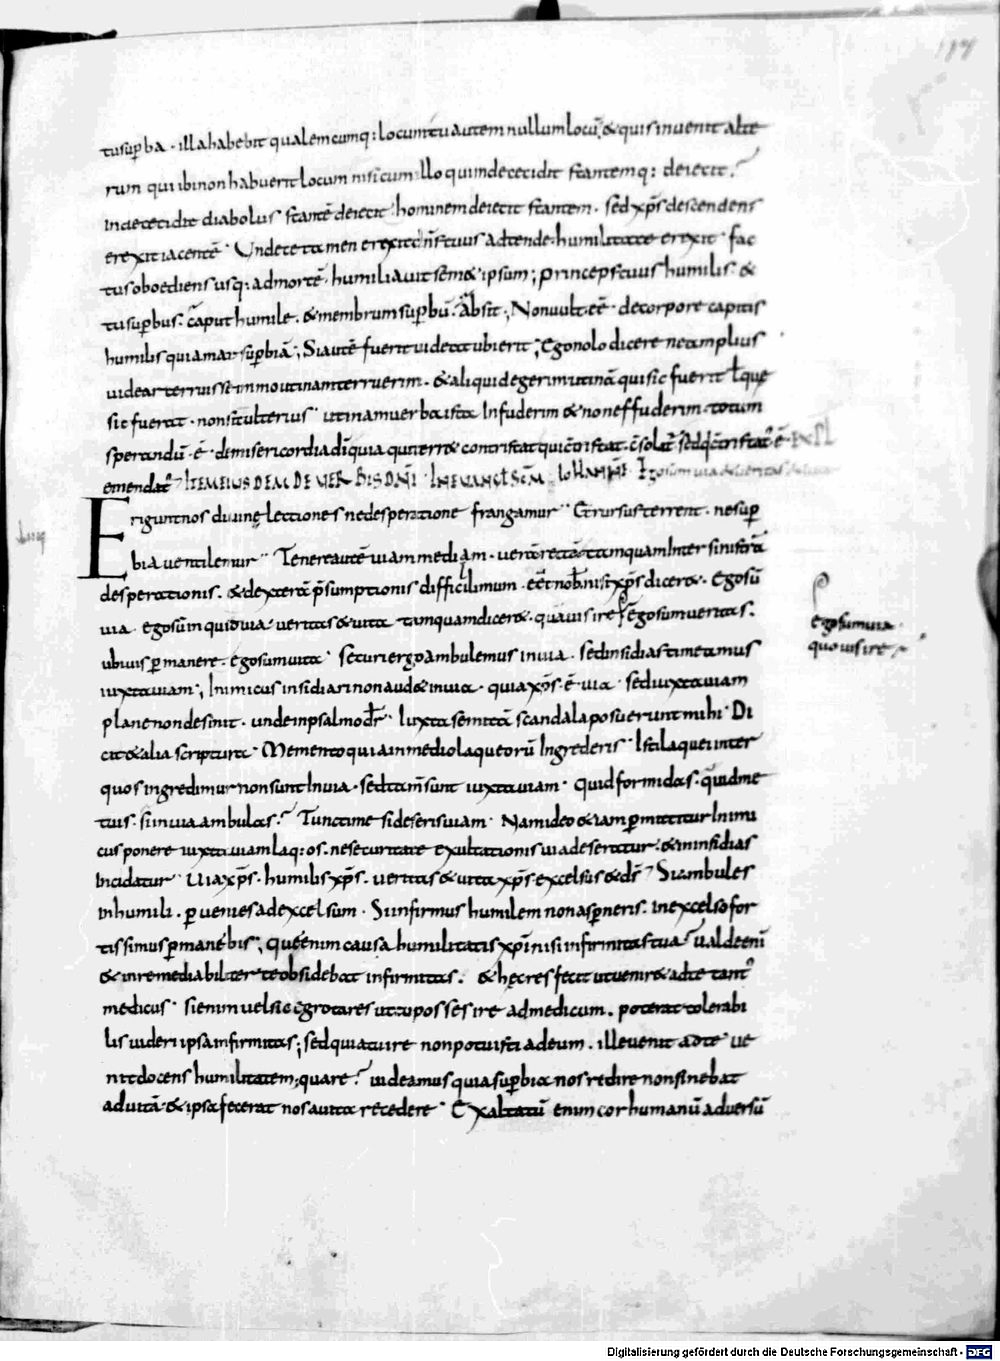 117
tu supba · illa habebit qualemcumq: locum tu autem nullum locū; & quis inuenit alte
rum qui ibi non habuerit locum nisi cum illo qui inde cecidit stantemq: deiecit?
inde cecidit diabolus stantē deiecit · hominem deiecit stantem · sed xp̄s descendens
erexit iacentē · Unde te tamen erexit dn̄s tuus adtende · humilitate erexit · fac
tus oboediens usq: ad mortē · humiliauit sem& ipsum; princeps tuus humilis · &
tu supbus · caput humile · & membrum supbū · Absit; Non uult · eē · de corpore capitis
humilis qui amat supbiā; Si autē fuerit uideat ubi erit; Ego nolo dicere ne amplius
uidear terruisse immo utinam terruerim · & aliquid egerim utinā qui sic fuerit t̄ que
sic fuerat · non sit ulterius · utinam uerba ista infuderim & non effuderim · totum
sperandū · ē · de misericordia dī quia qui terr& contristat qui c̄tristat · c̄solat̄ sed
emendat̄ ITEM EIUS DEM DE UERBIS DN̄I · IN EUANḠ SCM̄ · IOHANNE · Ego sum uia & ueritas
Eriguntnos diuinę lectiones ne desperatione frangamur · Et rursus terrent · ne sup
bia uentilemur · Tenere autē uiam mediam · uerā rectā tamquam inter sinistrā
desperationis · & dexterā p̄sumptionis difficillimum · eēt nob̄ nisi xp̄s dicer& · Ego sū
uia · ego sum inquid uia · ueritas & uita tamquam diceret · qua uis ire ego sum ueritas ·
ego sum uia ·
quo uis ire
ubi uis pmanere · ego sum uita · securi ergo ambulemus in uia · sed insidias timeamus
iuxta uiam; Inimicus insidiari non aud& in uia · quia xp̄s · ē · uia · sed iuxta uiam
plane non desinit · unde in psalmo dr̄ · Iuxta semitā scandala posuerunt mihi · Di
cit & alia scriptura · Memento quia in medio laqueorū ingrederis · Isti laquei inter
quos ingredimur non sunt in uia · sed tam̄ sunt iuxta uiam · quid formidas · quid me
tuis · si in uia ambulas? Tunc time si deseris uiam · Nam ideo & iam pmittitur inimi
cus ponere iuxta uiam laq:os · ne securitate exultationis uia deseratur · & in insidias
incidatur · Uia xp̄s · humilis xp̄s · ueritas & uita xp̄s · excelsus & ds̄ · Si ambules
in humili · puenies ad excelsum · Si infirmus humilem non aspneris · in excelso for
tissimus pmanebis; Quę enim causa humilitatis xp̄i nisi infirmitas tua · ualde enī
& inremediabiliter te obsidebat infirmitas · & hęc res fecit ut uenir& ad te tant'
medicus · si enim uel sic ęgrotares ut tu posses ire ad medicum · poterat tolerabi
lis uideri ipsa infirmitas; sed quia tu ire non potuisti ad eum · ille uenit ad te ue
nit docens humilitatem; quare? uideamus quia supbia nos redire non sinebat
ad uitā · & ipsa fecerat nos a uita recedere · Exaltatū enim cor humanū aduersū
Digitalisierung gefördert durch die Deutsche Forschungsgemeinschaft - DFG